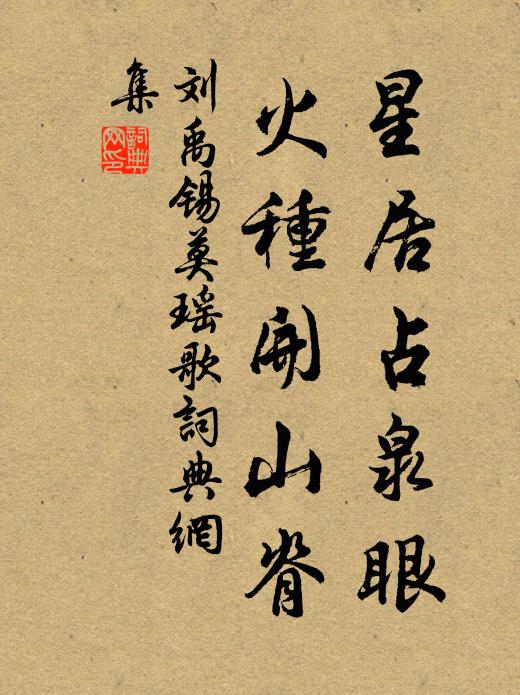 星居占泉眼
火種開山脊
刘禹锡莫瑶歌詞典網
集
詞典
网印